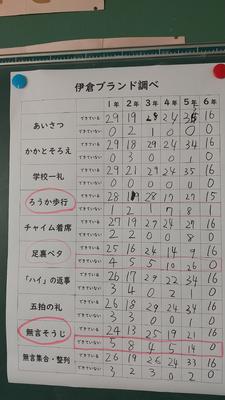 伊倉ブランド調べ
1年 2年 3年 4年 5年 6年
あいさつ できている 29 19 29 24 35 16
できていない 0 2 1 0 0 0
かかとそろえ できている 29 18 29 24 34 16
できていない 0 3 0 0 1 0
学校一礼 できている 29 21 29 24 35 16
できていない 0 0 0 0 0 0
ろうか歩行 できている 28 19 28 17 27 15
できていない 1 2 1 7 8 1
チャイム着席 できている 27 19 29 24 27 16
できていない 2 2 0 0 8 0
足裏ペタ できている 25 16 24 14 9 16
できていない 4 5 5 10 26 0
「ハイ」の返事 できている 26 17 29 22 34 16
できていない 3 4 0 2 1 0
五拍の礼 できている 26 18 29 24 34 16
できていない 3 3 0 0 1 0
無言そうじ できている 24 13 25 19 21 16
できていない 5 8 4 5 14 0
無言集合・整列 できている 26 19 26 24 33 16
できていない 3 2 3 0 2 0